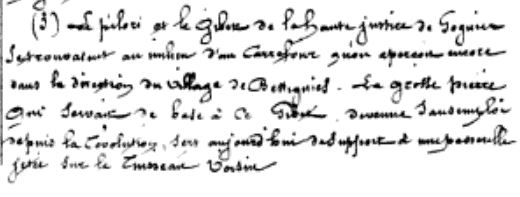 (3) Le pilori et le Gibet de la haute justice de Gognies
se trouvaient au milieu d'un Carrefour qu'on aperçoit encore
dans la direction du village de Bettignies. La grosse pierre
qui servait de base à ce Gibet, devenue sans emploi
depuis la Révolution, sert aujourd'hui de support à une passerelle
jetée sur le ruisseau voisin